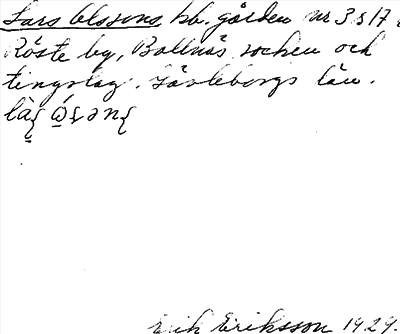 Lars Olssons, bb. gården nr 3 s 17 i
Röste by, Bollnäs socken och
tingslag. Gävleborgs län.
Erik Eriksson 1929.